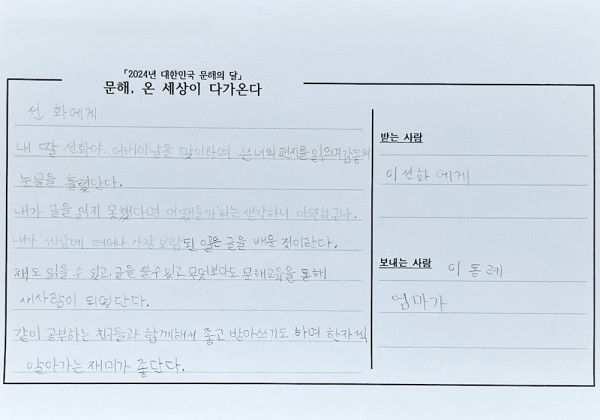 「2024년 대한민국 문해의 달」
문해, 온 세상이 다가온다
선화에게
내 딸 선화야. 어버이날을 맞이하여 쓴 너의 편지를 읽으며 감동의
눈물을 흘렸단다.
내가 글을 읽지 못했다면 어땠을까라는 생각하니 아찔하구나.
내가 세상에 태어나 가장 보람된 일은 글을 배운 것이란다.
책도 읽을 수 있고, 글을 쓸 수 있고 무엇보다도 문해교육을 통해
새사람이 되었단다.
같이 공부하는 친구들과 함께해서 좋고 받아쓰기도 하며 한자씩
알아가는 재미가 좋단다.
받는 사람
이선화에게
보내는 사람 이동례
엄마가